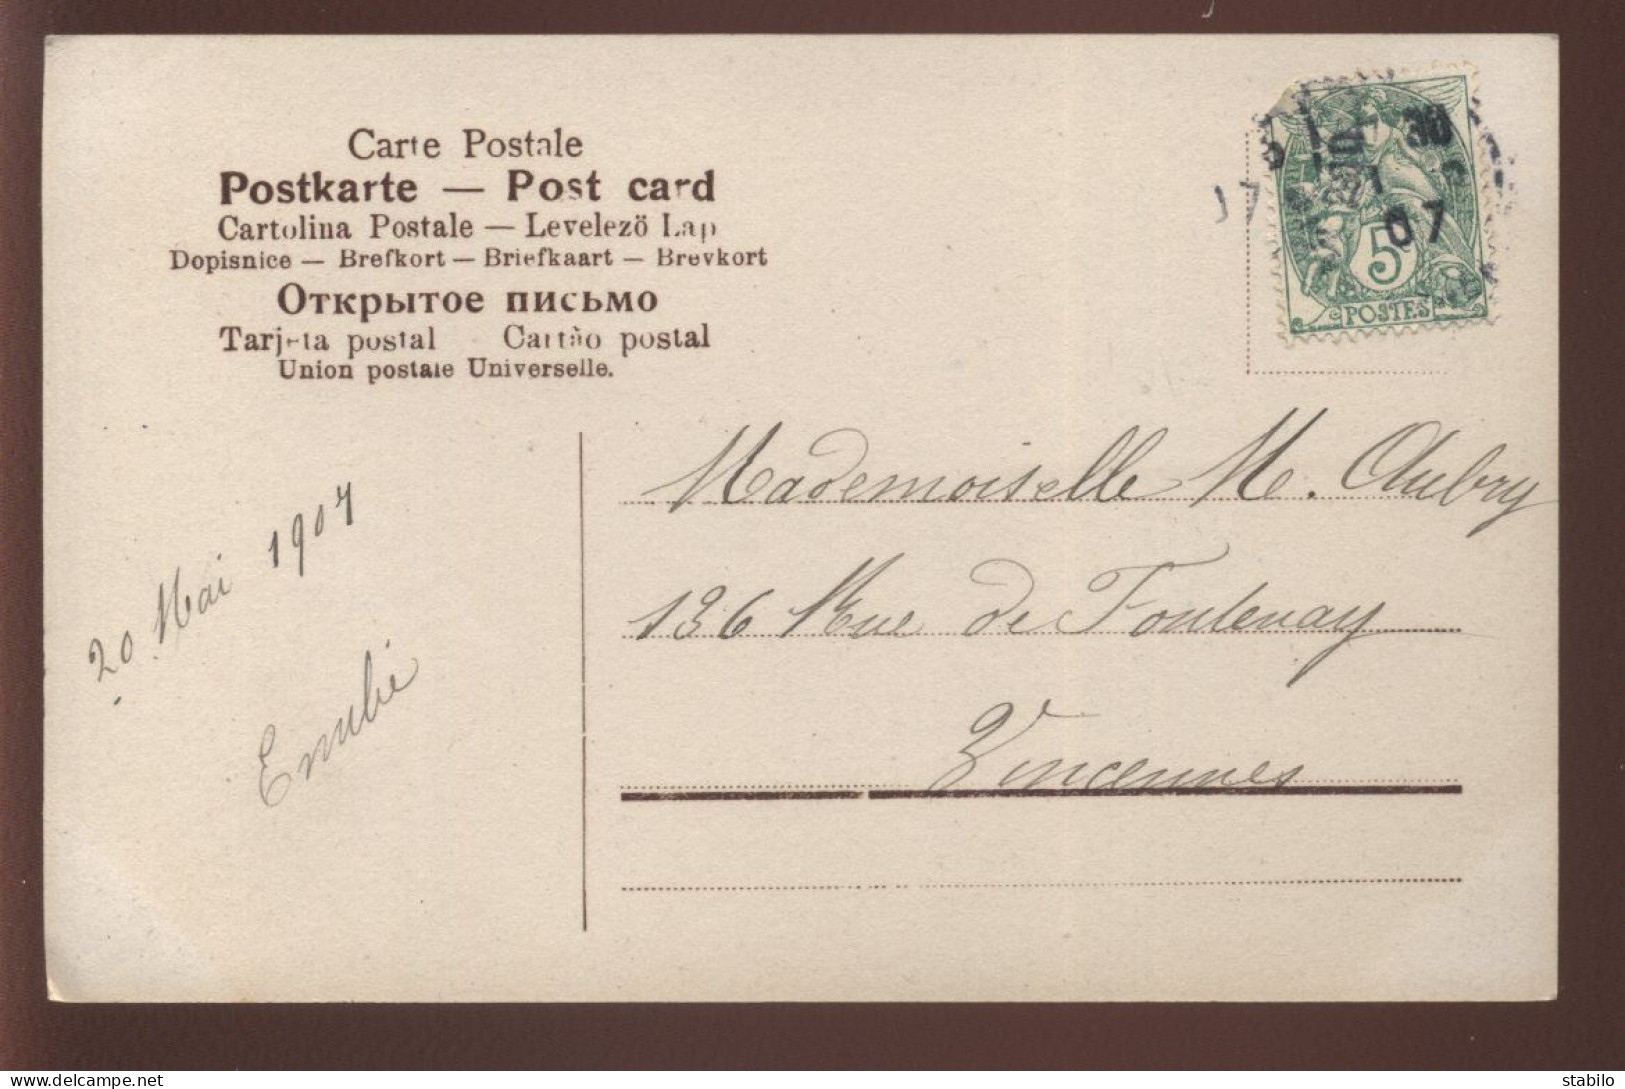 Carte Postale
Postkarte — Post card
Cartolina Postale — Levelezö Lap
Dopisnice — Brefkort — Briefkaart — Brevkort
Открытое письмо
Tarjeta postal Cartão postal
Union postale Universelle.
30
07
5
POSTES
Mademoiselle M. Aubry
136 Rue de Fontenay
Vincennes
20 Mai 1907
delcampe.net
stabilo